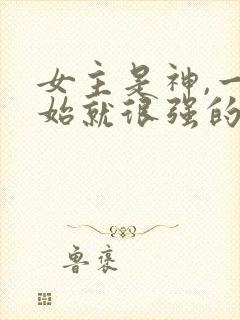 女主是神,一
始就很强的
鲁褒